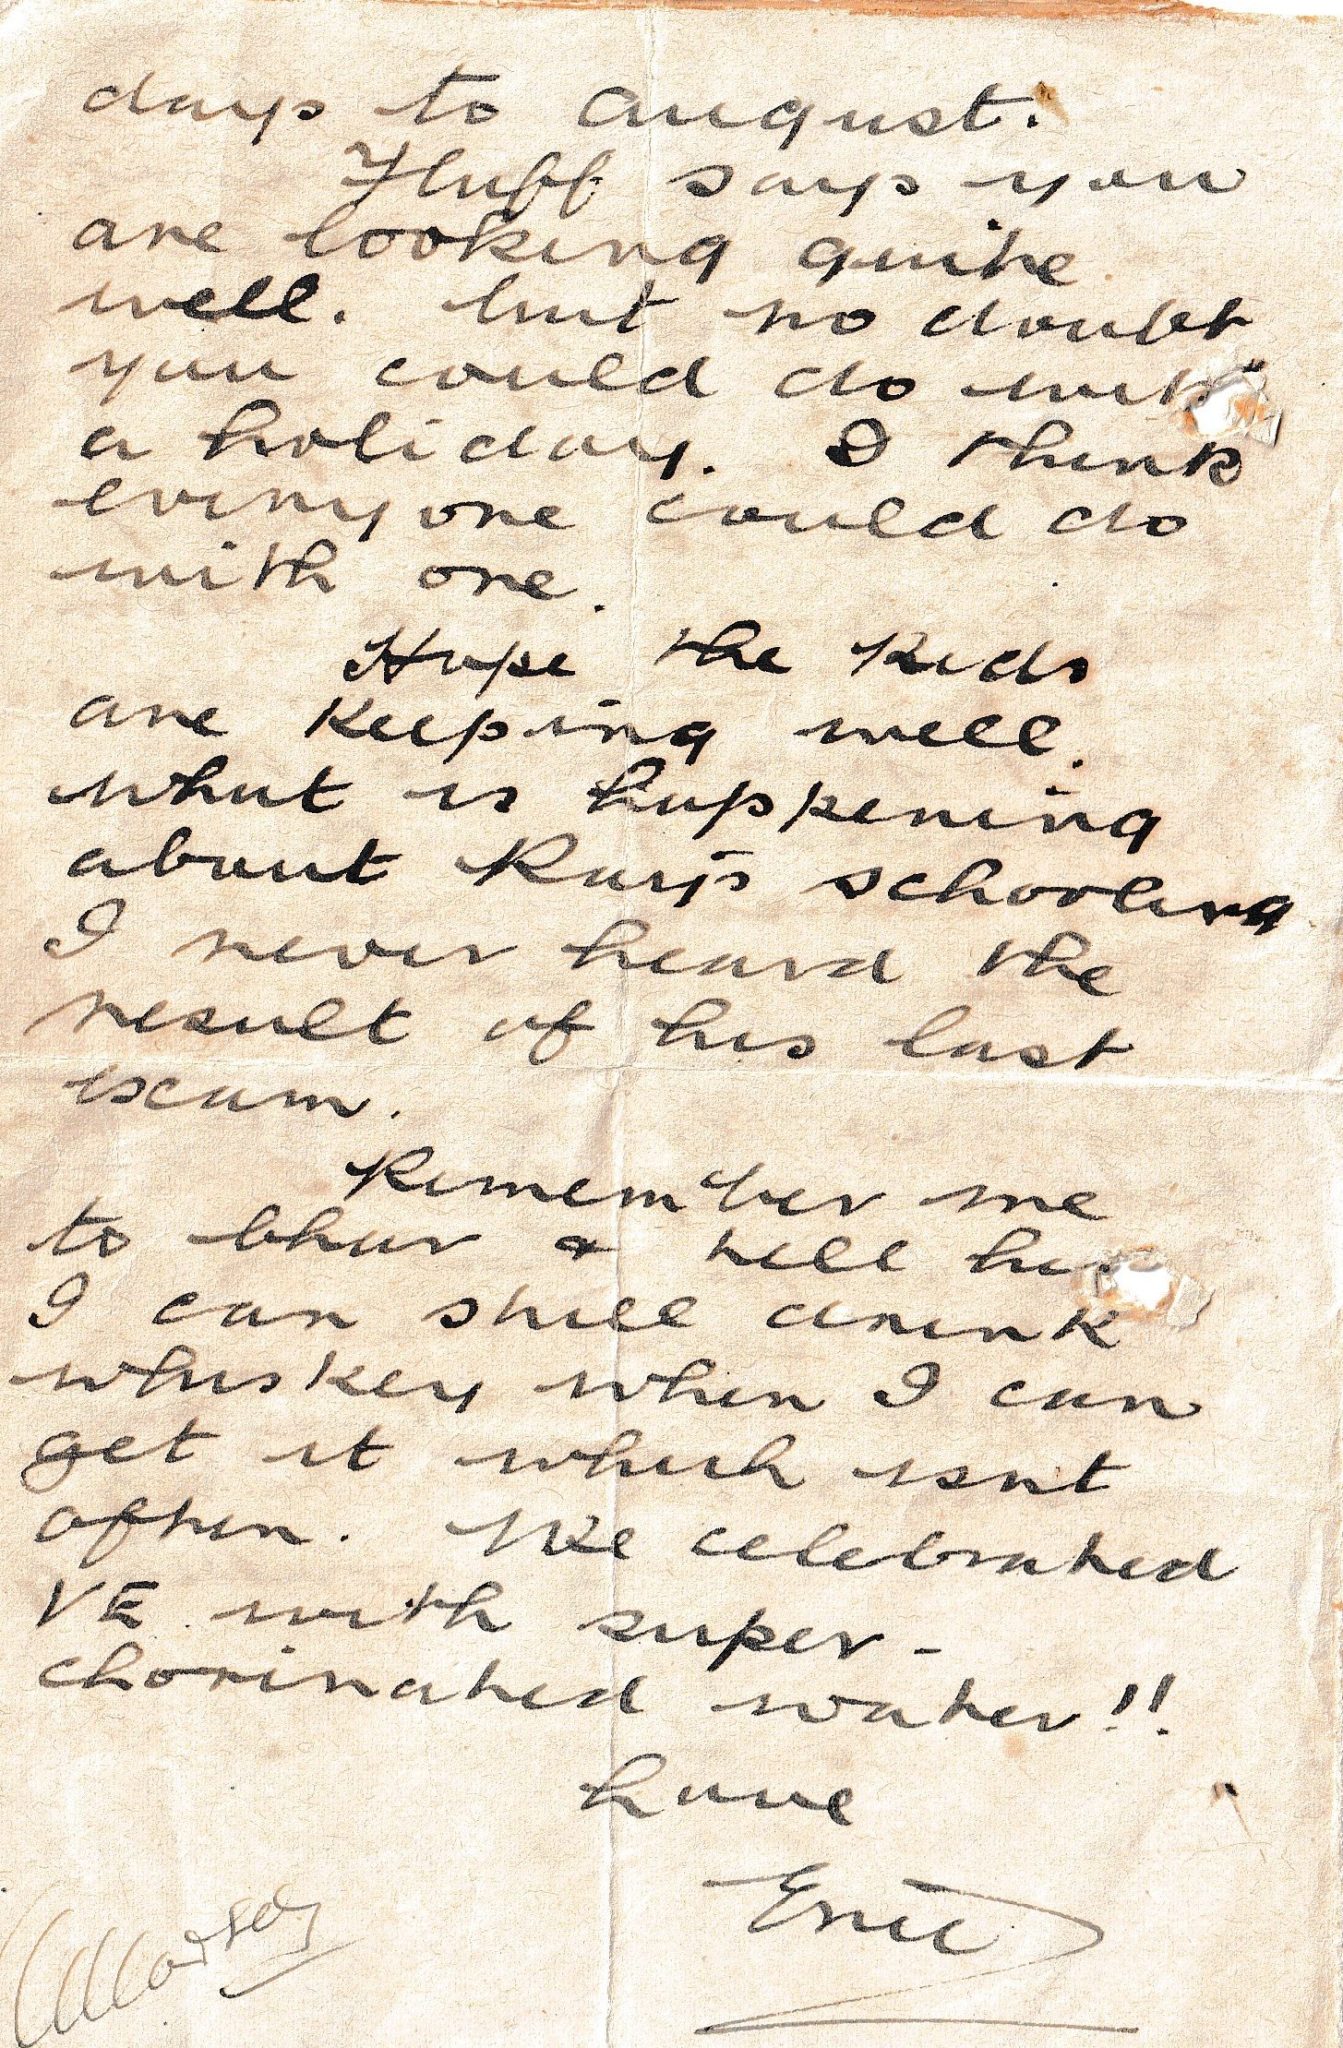 days to august.
Fluff says you
are looking quite
well. but no doubt
you could do with
a holiday. I think
everyone could do
with one.
Hope the kids
are keeping well.
what is happening
about Ray's schooling
I never heard the
result of his last
exam.
Remember me
to & tell
I can still drink
whiskey when I can
get it which isnt
often. We celebrated
VE with super-
chorinated water!!
Love
Eric